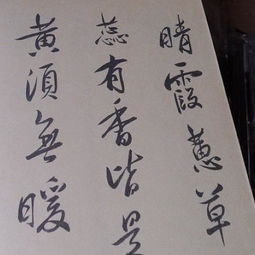 晴霞蕙草
蕊有香皆
黄須無暖